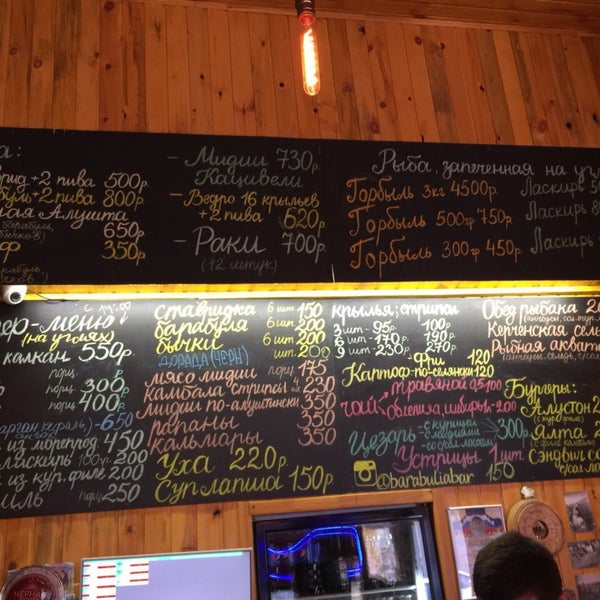 а:
рид+2 пива 500р
буль+2 пива 800р
ная Алушта
650р
350р
– Мидии 730р.
Кацивели
– Ведро 16 крыльев
+2 пива 620р
– Раки 700р
(12 штук)
Рыба, запеченная на угл
Горбыль 3кг 4500р.
Горбыль 500гр 750р.
Горбыль 300гр 450р.
Ласкирь
Ласкирь
ер-меню
(на углях)
калкан 550р.
порц
300р
порц 400р
650
из морепрод 450
ласкирь 100р. 200
из кур. филе 200
порц 250
ставридка 6 шт 150
барабуля 6 шт 200
бычки 6 шт 200
дорада (черн) шт. 200
мясо мидии порц 175
камбала стрипсы 230
мидии по-алуштински 350
рапаны 350
кальмары 350
Уха 220р.
Суп лапша 150р.
крылья; стрипсы
3 шт-95р. 100р.
6 шт-170р. 190р.
9 шт-230р. 270р.
Фри 120
Картоф-по-селянски 120
чай
травяной 0,5 100
облепиха, имбирь 1л-200
Цезарь
с курицей
300р.
Устрицы 1 шт.
150
@barabuliabar
Обед рыбака 20
Керченская сель
Рыбная аквата
Бургеры:
Алустон 2
Ялта
Сэндвич